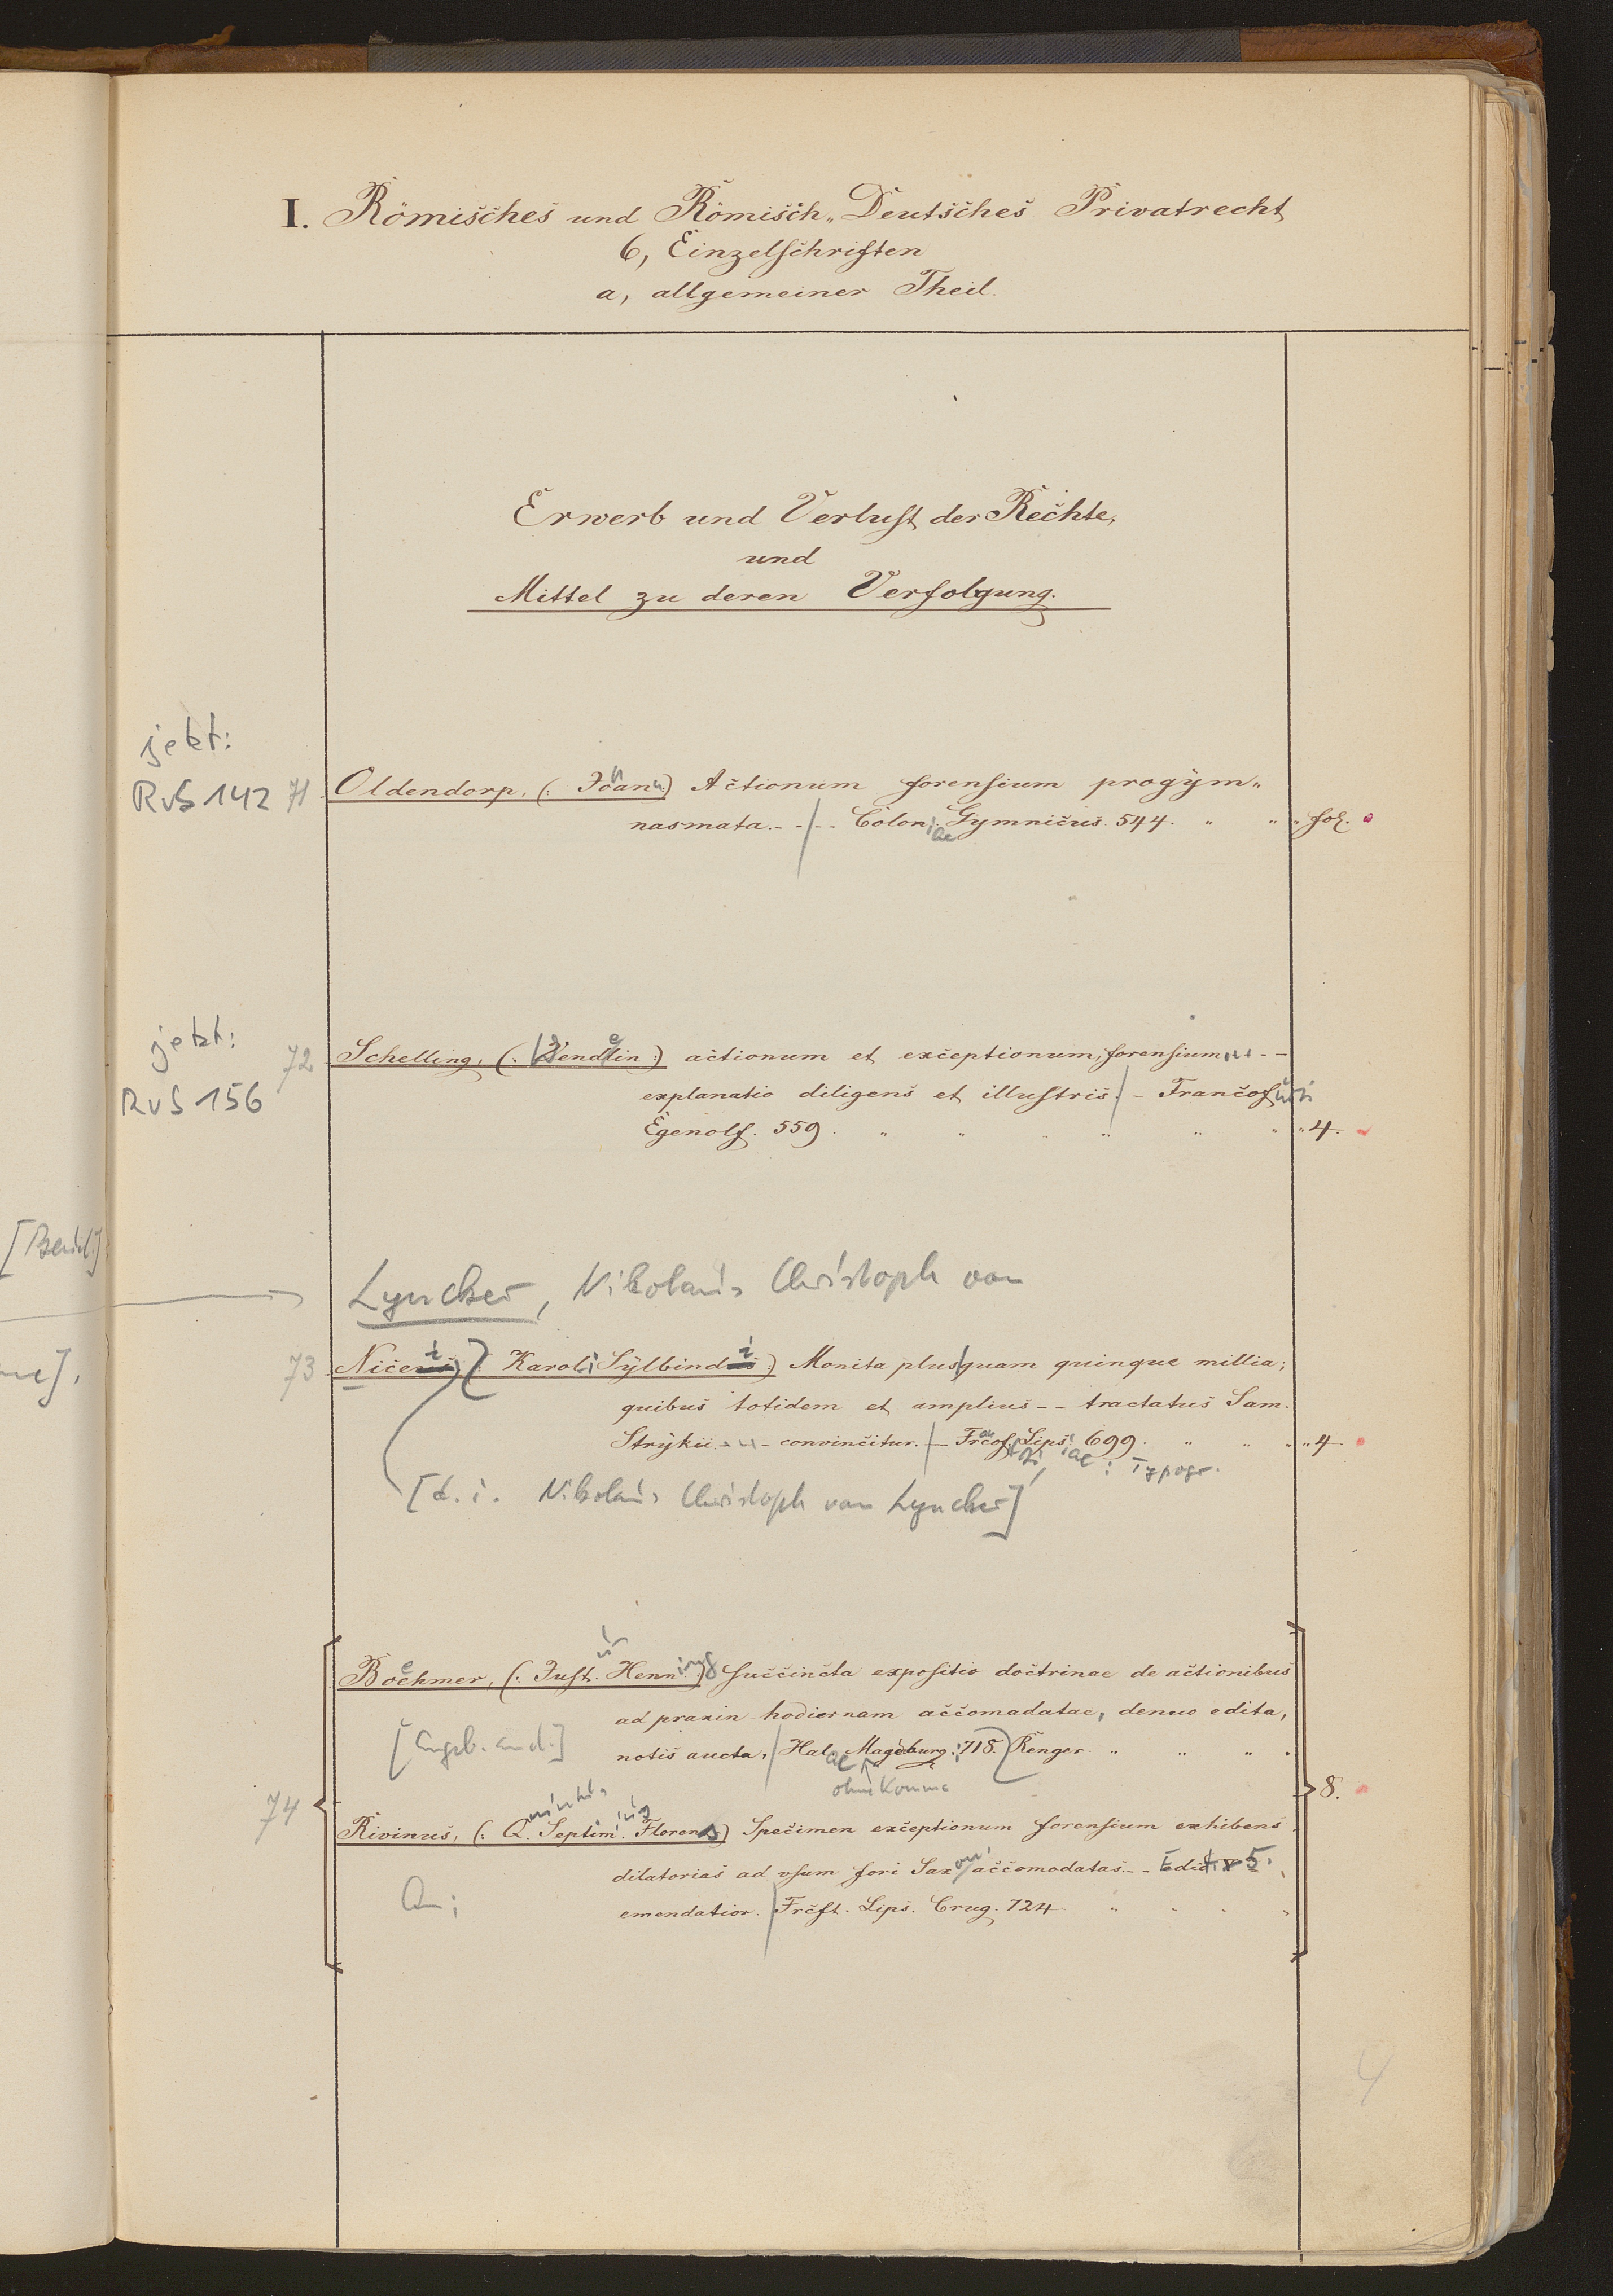 I. Römisches und Römisch„Deutsches Privatrecht
6, Einzelschriften
a, allgemeiner Theil.
Erwerb und Verlust der Rechte,
und
Mittel zu deren Verfolgung.
jetzt:
RvS 142 71 Oldendorp, (: Joann:) Actionum forensium progym„
nasmata. - - / - - Coloniae Gymnicus. 544. " " " fol.
jetzt:
72 Schelling, (: Wendelin :) actionum et exceptionum, forensium - -
RvS 156
explanatio diligens et illustris. / - Francofurti
Egenolf. 559. " " " " " " " 4.
[Berichl.]
Lyncker, Nikolaus Christoph von
73 Niceni (: Karoli Sylbindi :) Monita plus quam quinque millia;
quibus totidem et amplius - - tractatus Sam.
Strykii - - convincitur. / - Francof. Lips. 699. " " " " 4
iae : Typogr.
[d. i. Nikolaus Christoph von Lyncker]
Boehmer, (: Just. Henning) succincta expositio doctrinae de actionibus
ad praxin hodiernam accomadatae, denuo edita,
[Angeb. an d.] notis aucta, / Halae Magdeburg. 718. Renger. " " " "
ohne Komma
74 8.
Rivinus, (: Quintus Septimius Florens) Specimen exceptionum forensium exhibens
dilatorias ad vsum fori Saxoni accomodatas. - - Edit. 5.
An:
emendatior. / Frcft. Lips. Crug. 724 " " " "
4